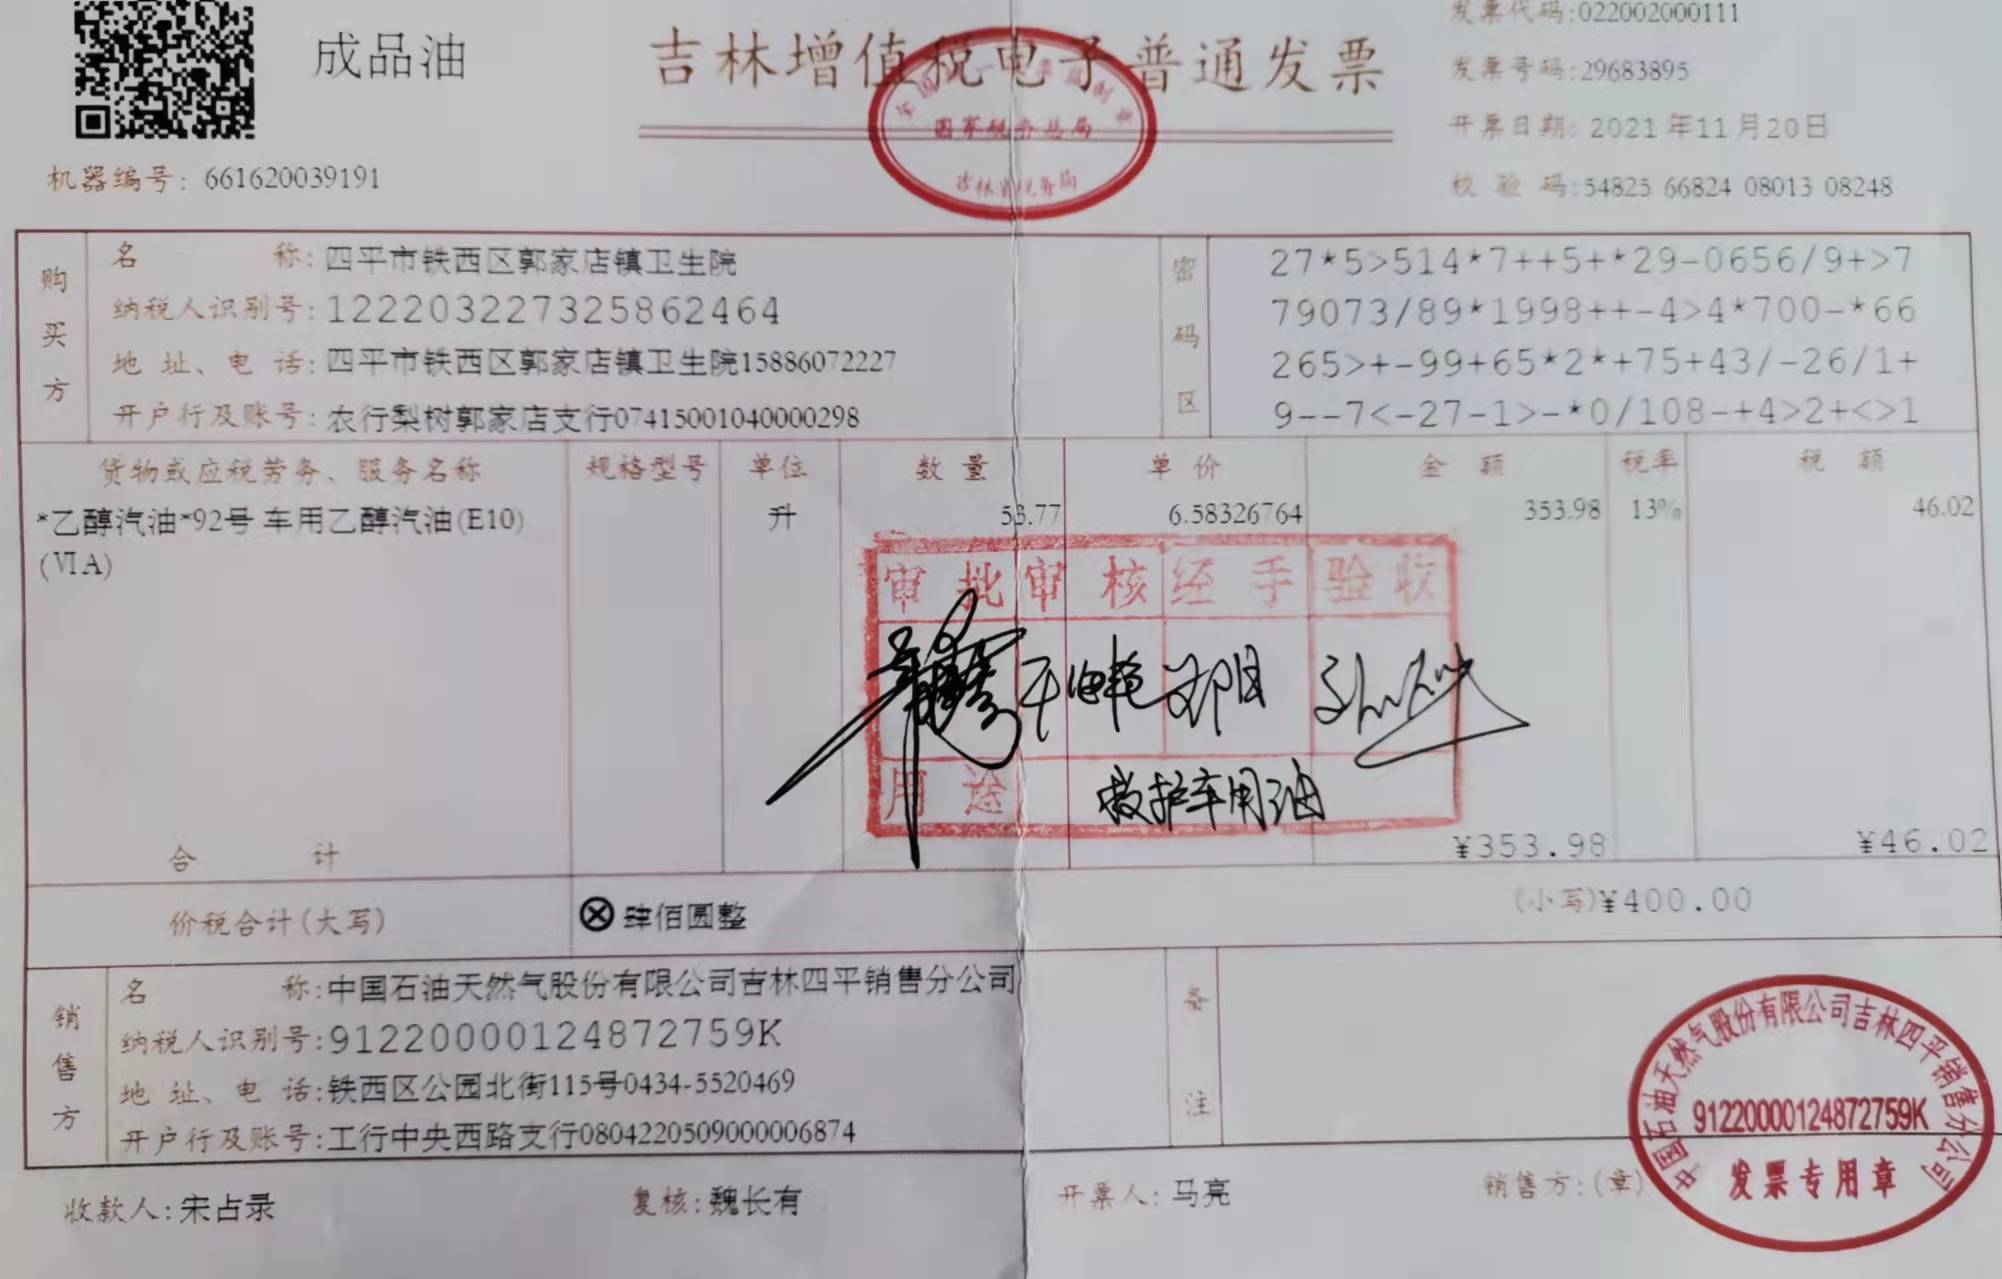 成品油
吉林增值税电子普通发票
国家税务总局
吉林省税务局
发票代码:022002000111
发票号码:29683895
开票日期: 2021年11月20日
校 验 码:54825 66824 08013 08248
机器编号: 661620039191
购买方
名 称: 四平市铁西区郭家店镇卫生院
纳税人识别号: 122203227325862464
地 址、电 话: 四平市铁西区郭家店镇卫生院15886072227
开户行及账号: 农行梨树郭家店支行07415001040000298
密码区
27*5>514*7++5+*29-0656/9+>7
79073/89*1998++-4>4*700-*66
265>+-99+65*2*+75+43/-26/1+
9--7<-27-1>-*0/108-+4>2+<>1
货物或应税劳务、服务名称 规格型号 单位 数 量 单 价 金 额 税率 税 额
*乙醇汽油*92号 车用乙醇汽油(E10) 升 53.77 6.58326764 353.98 13% 46.02
(ⅥA)
审 批 审 核 经 手 验 收
用 途 救护车用油
合 计 ¥353.98 ¥46.02
价税合计(大写) ⊗肆佰圆整 (小写)¥400.00
销售方
名 称:中国石油天然气股份有限公司吉林四平销售分公司
纳税人识别号:91220000124872759K
地 址、电 话:铁西区公园北街115号0434-5520469
开户行及账号:工行中央西路支行0804220509000006874
备注
中国石油天然气股份有限公司吉林四平销售分公司
91220000124872759K
发票专用章
收款人:宋占录 复核:魏长有 开票人:马亮 销售方:(章)